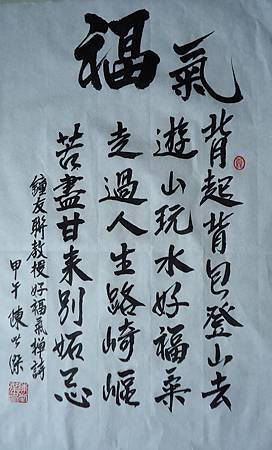 福氣
背起背包登山去
遊山玩水好福氣
走過人生路崎嶇
苦盡甘来別妬忌
鍾友聯教授好福氣禅詩
甲午陳